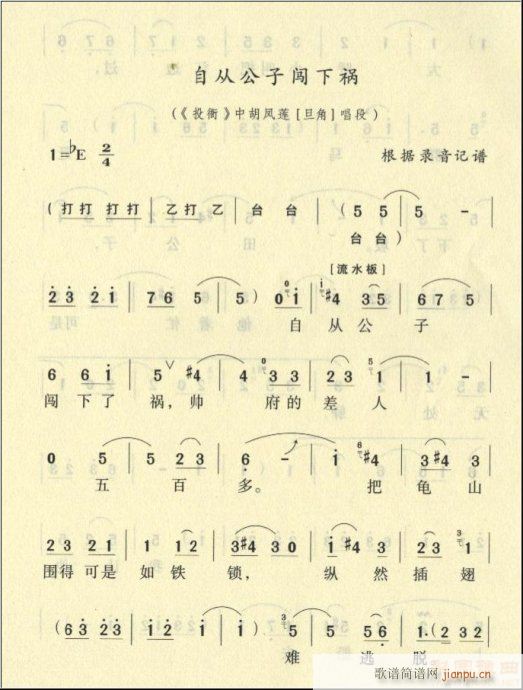 自从公子闯下祸
(《投衙》中胡凤莲[旦角]唱段)
1=♭E 2/4 根据录音记谱
(打打 打打 | 乙打 乙 | 台 台 | (5 5 | 5 - |
台台)
[流水板]
2̇3̇ 2̇1̇ | 76 5 | 5) 01̇ | #4 35 | 675 |
自 从 公 子
6 61̇ | 5 ∨ #4 | 4 33 | 23 5 | 1 - |
闯 下了 祸,帅 府的 差 人
0 5 | 5 23 | 6 - | 1̇ #4 | 3#4 3 |
五 百 多。 把 龟 山
23 21 | 1 12 | 3#4 30 | 01̇ #4 | 23 1 |
围得 可是 如 铁 锁, 纵 然 插 翅
(63̇ 2̇3̇ | 1̇2̇ 1̇1̇ | 01) 3 | 5 56 | 1. (232 |
难 逃 脱
歌谱简谱网 jianpu.cn